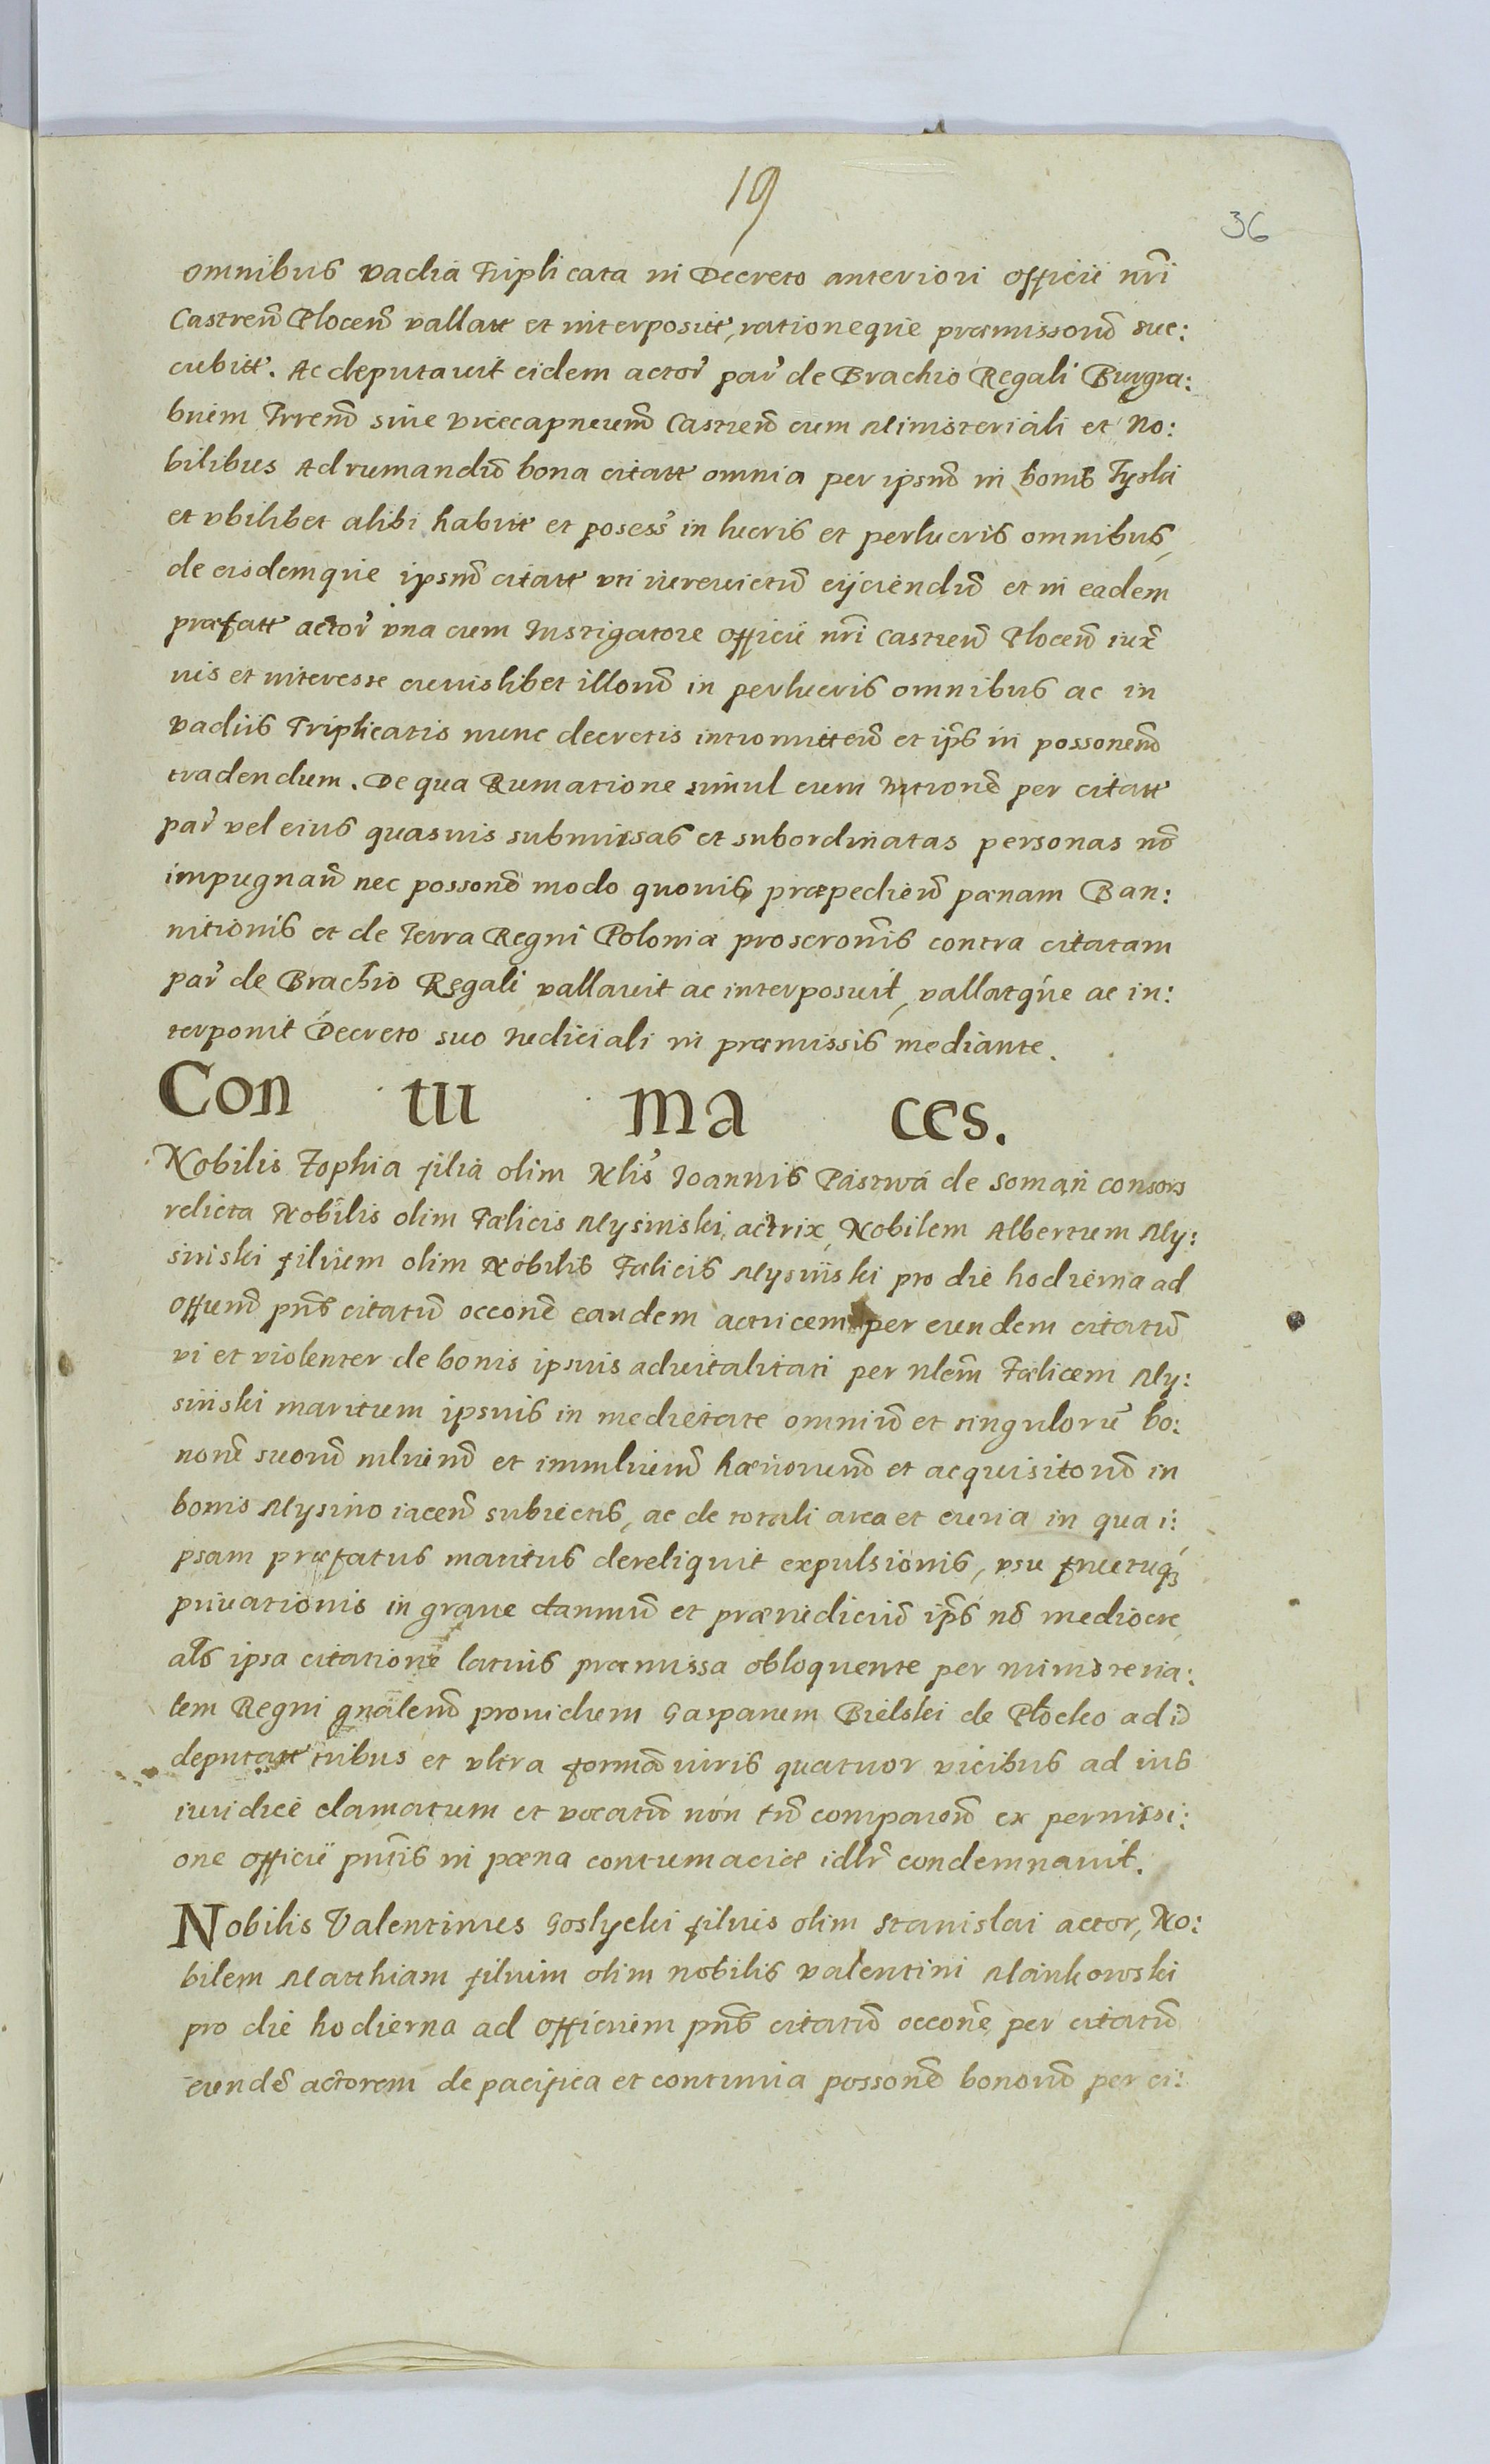 19
36
omnibus vadia Triplicata in Decreto anteriori officii nrī
Castreñ Plocen̄ vallatt et interposítt, rationeque præmissorū suc:
cubitt. Ac deputauit eidem actor̄ par̄ de Brachio Regali Burgra:
bium Trrenū siue vicecapneum̄ Castren̄ cum Ministeriali et No:
bilibus Ad rumandū bona citatt omnia per ipsum̄ in bonis Tyski
et vbilibet alibi habitt et posess̄ in lucris et perlucris omnibus,
de eisdemque ipsum̄ citatt vti iureuictū eijciendū et in eadem
præfatt actor̄ vna cum Instigatore officii nrī Castren̄ Plocen̄ iux̄
uis et interesse cuiuslibet illorū in perlucris omnibus ac in
vadiis Triplicatis nunc decretis intromitten̄ et ip̄s in possonem̄
tradendum. De qua Rumatione simul cum Intronē per citatt
par̄ vel eius quasuis submissas et subordinatas personas nō
impugnan̄ nec possonē modo quouis præpedien̄ pœnam Ban:
nitionis et de Terra Regni Poloniæ proscronīs contra citatam
par̄ de Brachio Regali vallauit ac interposuit, vallatque ac in:
terponit Decreto suo Iudiciali in præmissis mediante.
Con tu ma ces.
Nobilis Zophia filia olim Nlis̄ Ioannis Pastwa de Soman consors
relicta Nobilis olim Fælicis Mysinski, actrix, Nobilem Albertum My:
sinski filium olim Nobilis Fælicis Mysinski pro die hodierna ad
offium̄ pn̄s citatū occonē eandem actricem per eundem citatū
vi et violenter de bonis ipsius aduitalitati per Nlem̄ Fælicem My:
sinski maritum ipsius in medietate omniū et singulorū bo:
norū suorū mluium̄ et immluium̄ hæriorum̄ et acquisitorū in
bonis Mysino iacen̄ subiectis, ac de totali area et curia in qua i:
psam præfatus maritus dereliquit expulsionis, vsu fructuq́ꝫ
priuationis in graue damnū et præiudiciū ip̄s nō mediocre,
al̄s ipsa citatione latius præmissa obloquente per ministeria:
lem Regni gnalem̄ prouidum Gasparem Bielski de Plocko ad id
deputatt tribus et vltra formā iuris quatuor vicibus ad ius
iuridice clamatum et vocatū non tn̄ comparen̄ ex permissi:
one officii pn̄tis in pœna contumaciæ idl̄r condemnauit.
Nobilis Valentinus Goslycki filius olim Stanislai actor, No:
bilem Matthiam filium olim nobilis Valentini Mankowski
pro die hodierna ad officium pn̄s citatū occonē, per citatū
eundē actorem de pacifica et continua possonē bonorū per ci: